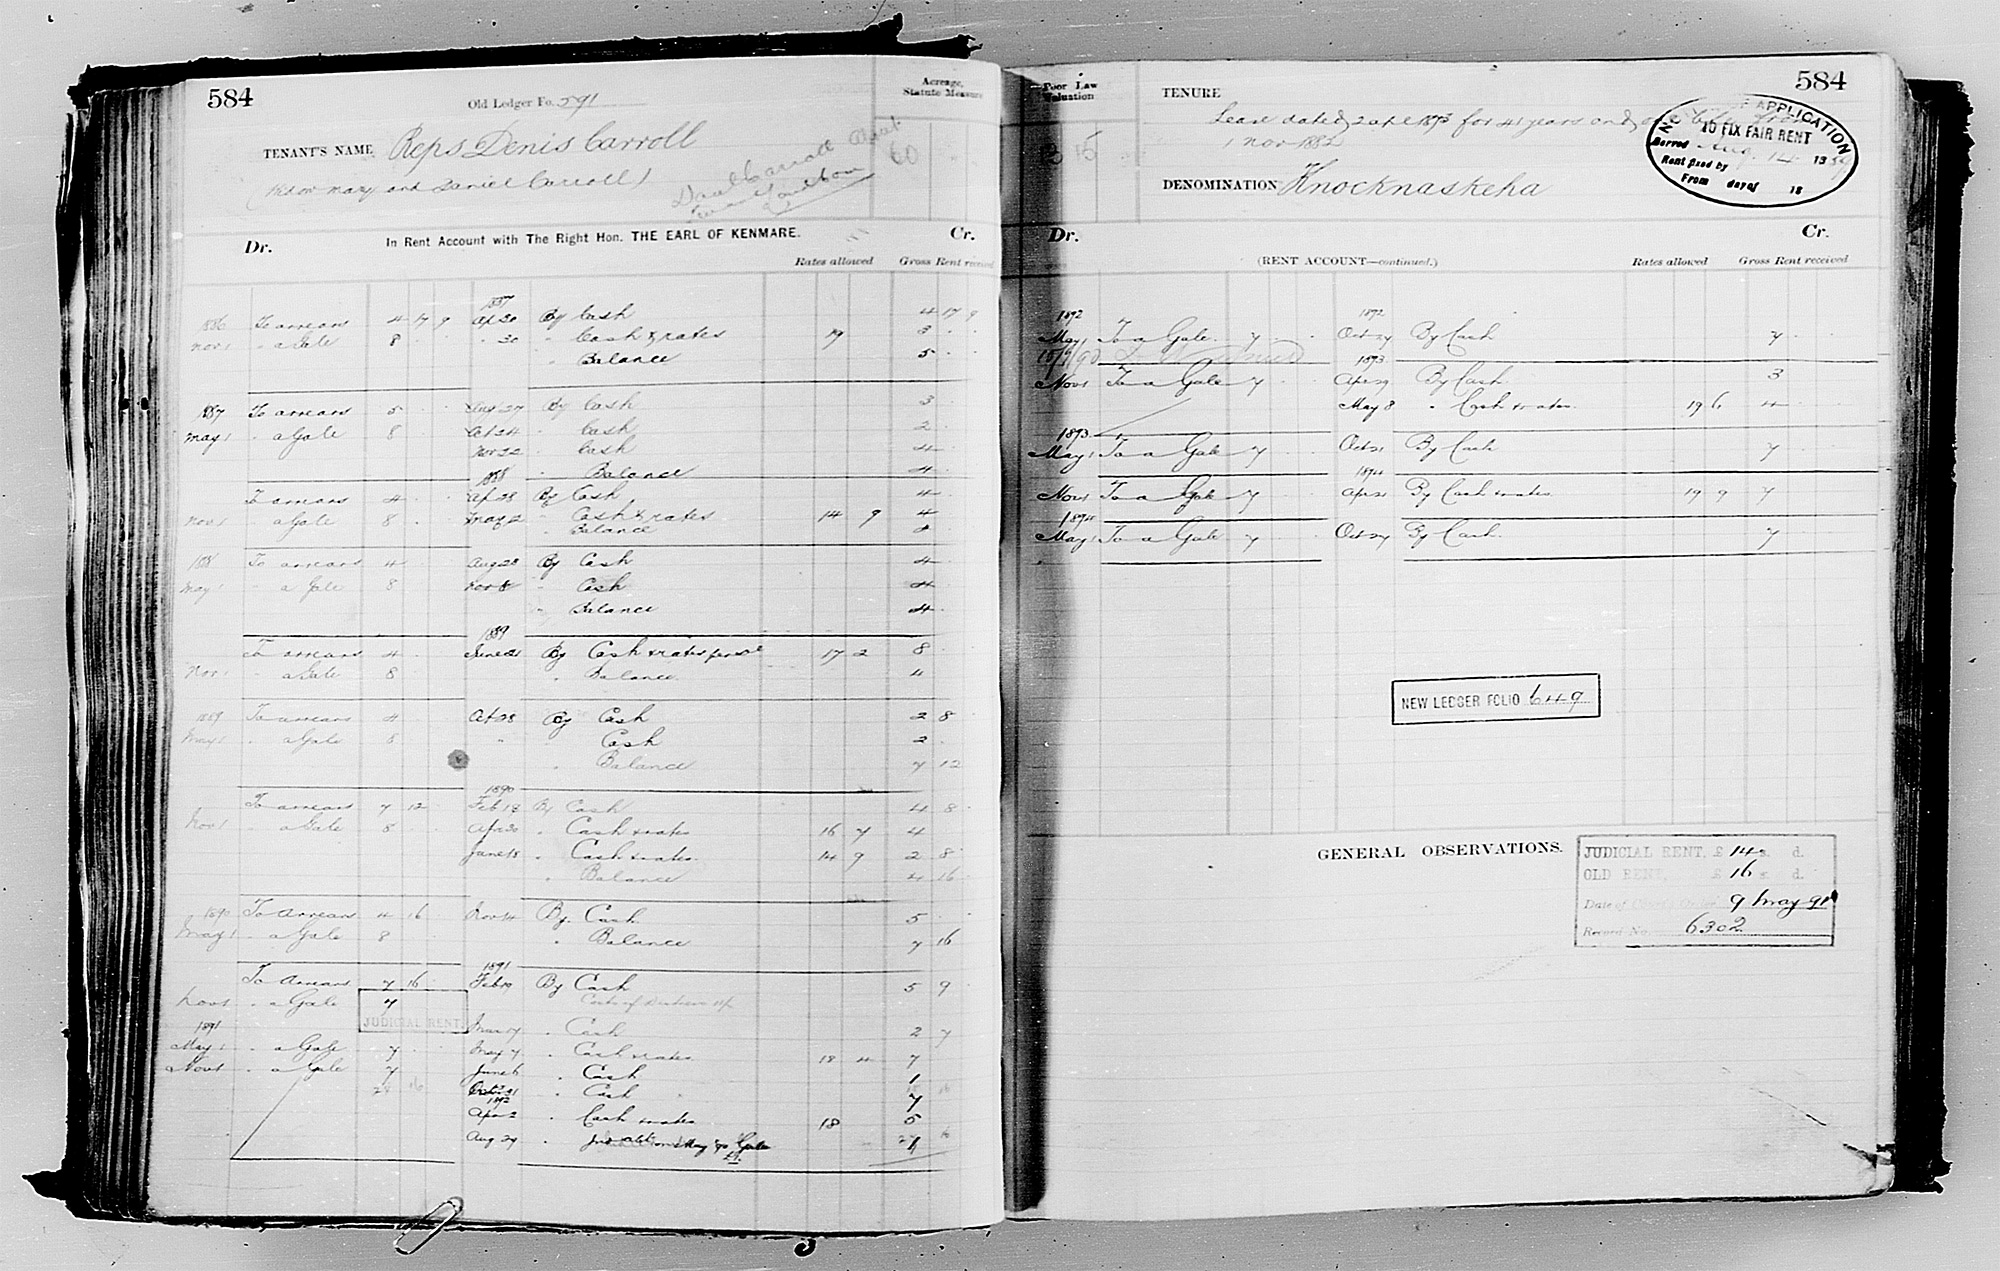 584
Old Ledger Fo. 591
Acreage, Statute Measure
TENANT'S NAME Reps Denis Carroll
(Widow Mary and Daniel Carroll)
60
Dr. In Rent Account with The Right Hon. THE EARL OF KENMARE. Cr.
Rates allowed Gross Rent received
1887
1886 To arrears 4 17 9 Ap 30 By Cash 4 17 9
Nov 1 " a Gale 8 " 30 " Cash & rates 19 3
" Balance 5
1887 To arrears 5 Aug 27 By Cash 3
May 1 " a Gale 8 Oct 24 " Cash 2
Nov 22 " Cash 4
1888 " Balance 4
To arrears 4 Ap 28 By Cash 4
Nov 1 " a Gale 8 May 12 " Cash & rates 14 9 4
" Balance
1888 To arrears 4 Aug 28 By Cash 4
May 1 " a Gale 8 Nov 8 " Cash 4
" Balance 4
1889
To arrears 4 June 21 By Cash & rates 17 2 8
Nov 1 " a Gale 8 " Balance 4
1889 To arrears 4 Oct 28 By Cash 2 8
May 1 " a Gale 8 " " Cash 2
" Balance 7 12
1890
To arrears 7 12 Feb 13 By Cash 4 8
Nov 1 " a Gale 8 Apr 30 " Cash & rates 16 7 4
June 18 " Cash & rates 14 9 2 8
" Balance 4 16
1890 To Arrears 4 16 Nov 14 By Cash 5
May 1 " a Gale 8 " Balance 7 16
1891
To Arrears 7 16 Feb 19 By Cash 5 9
Nov 1 " a Gale 7
JUDICIAL RENT
Mar 17 " Cash 2 7
1891
May 1 " a Gale 7 May 7 " Cash & rates 18 4 7
Nov 1 " a Gale 7 June 6 " Cash 1
Oct 21 " Cash 7
1892
Apr 2 " Cash & rates 18 5
Aug 29 " May 90 Gale 1
584
Poor Law Valuation
15
TENURE
Lease dated 2 for 41 years and
1 Nov 1882
DENOMINATION Knocknaskeha
NOTICE OF APPLICATION
TO FIX FAIR RENT
Served Aug. 14 1889
Rent fixed by
From day of 18
Dr. Cr.
(RENT ACCOUNT—continued.)
Rates allowed Gross Rent received
1892 1892
May 1 To a Gale 7 Oct 27 By Cash 7
1893
Nov 1 To a Gale 7 Apr 29 By Cash 3
May 8 " Cash & rates 19 6 4
1893
May 1 To a Gale 7 Oct 21 By Cash 7
1894
Nov 1 To a Gale 7 Apr 21 By Cash & rates 19 9 7
1894
May 1 To a Gale 7 Oct 27 By Cash 7
NEW LEDGER FOLIO 649
GENERAL OBSERVATIONS.
JUDICIAL RENT, £ 14 s. d.
OLD RENT, £ 16 s. d.
Date of 9 May 91
Record No. 6302